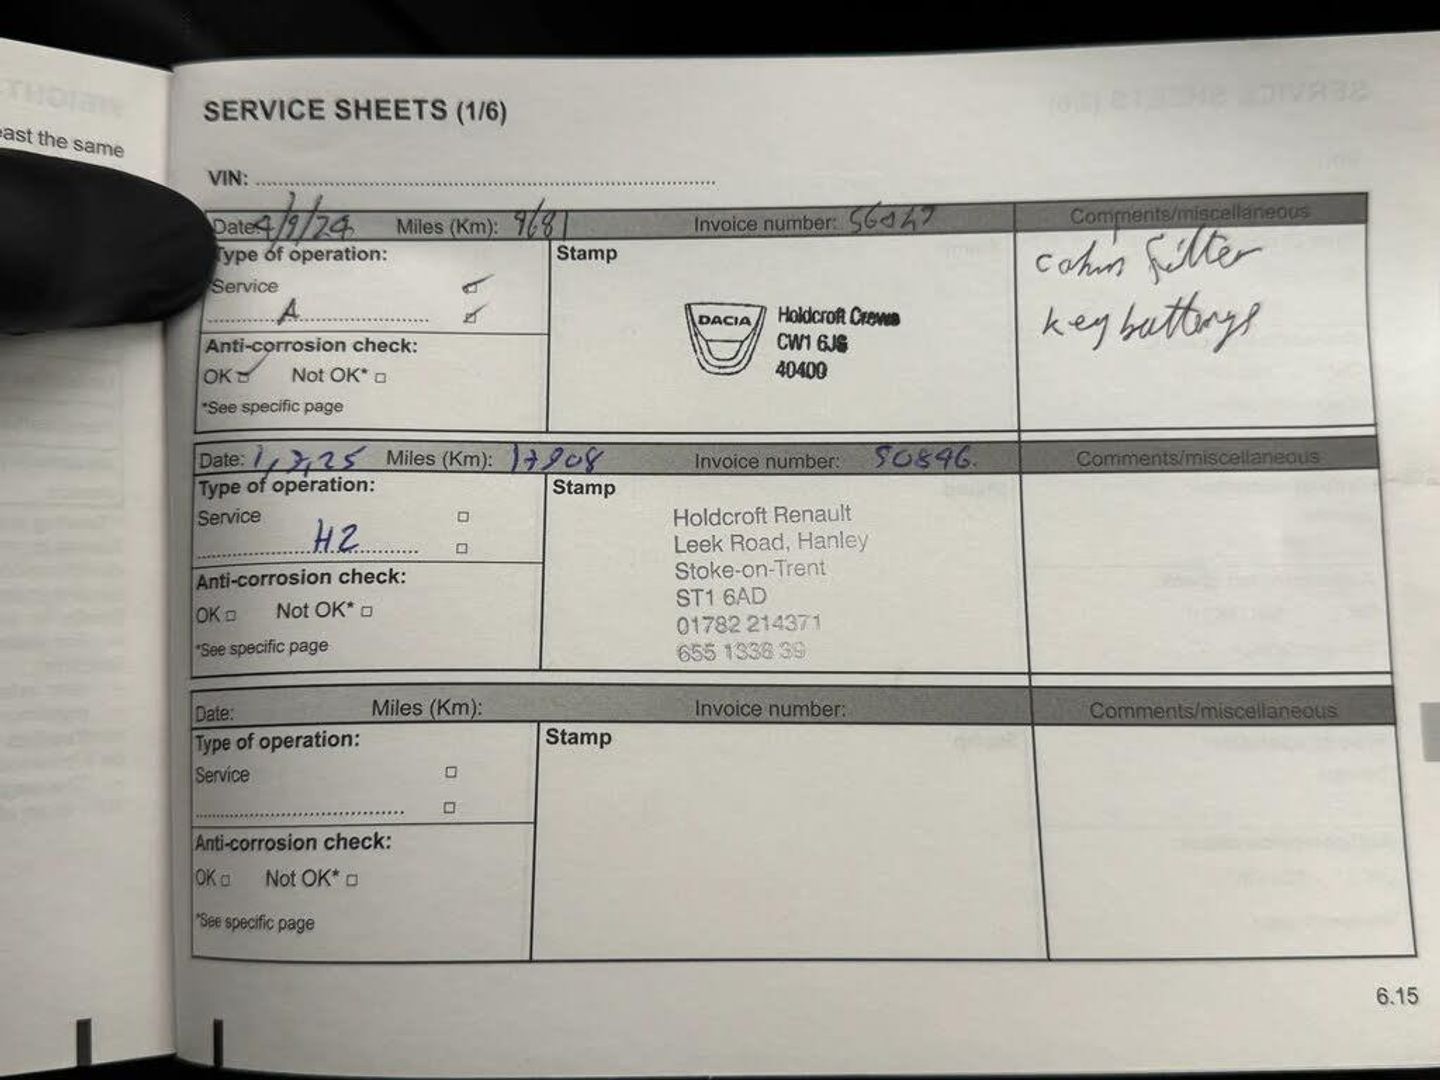 east the same
SERVICE SHEETS (1/6)
VIN:
Date: 4/9/24 Miles (Km): 9681 Invoice number: Comments/miscellaneous
Type of operation:
Service
A
Anti-corrosion check:
OK Not OK*
*See specific page
Stamp
DACIA
Holdcroft Crewe
CW1 6JS
40400
cabin filter
key batterys
Date: 1,7,25 Miles (Km): 17908 Invoice number: 50896. Comments/miscellaneous
Type of operation:
Service
H2
Anti-corrosion check:
OK Not OK*
*See specific page
Stamp
Holdcroft Renault
Leek Road, Hanley
Stoke-on-Trent
ST1 6AD
01782 214371
655 1338 39
Date: Miles (Km): Invoice number: Comments/miscellaneous
Type of operation:
Service
Anti-corrosion check:
OK Not OK*
*See specific page
Stamp
6.15